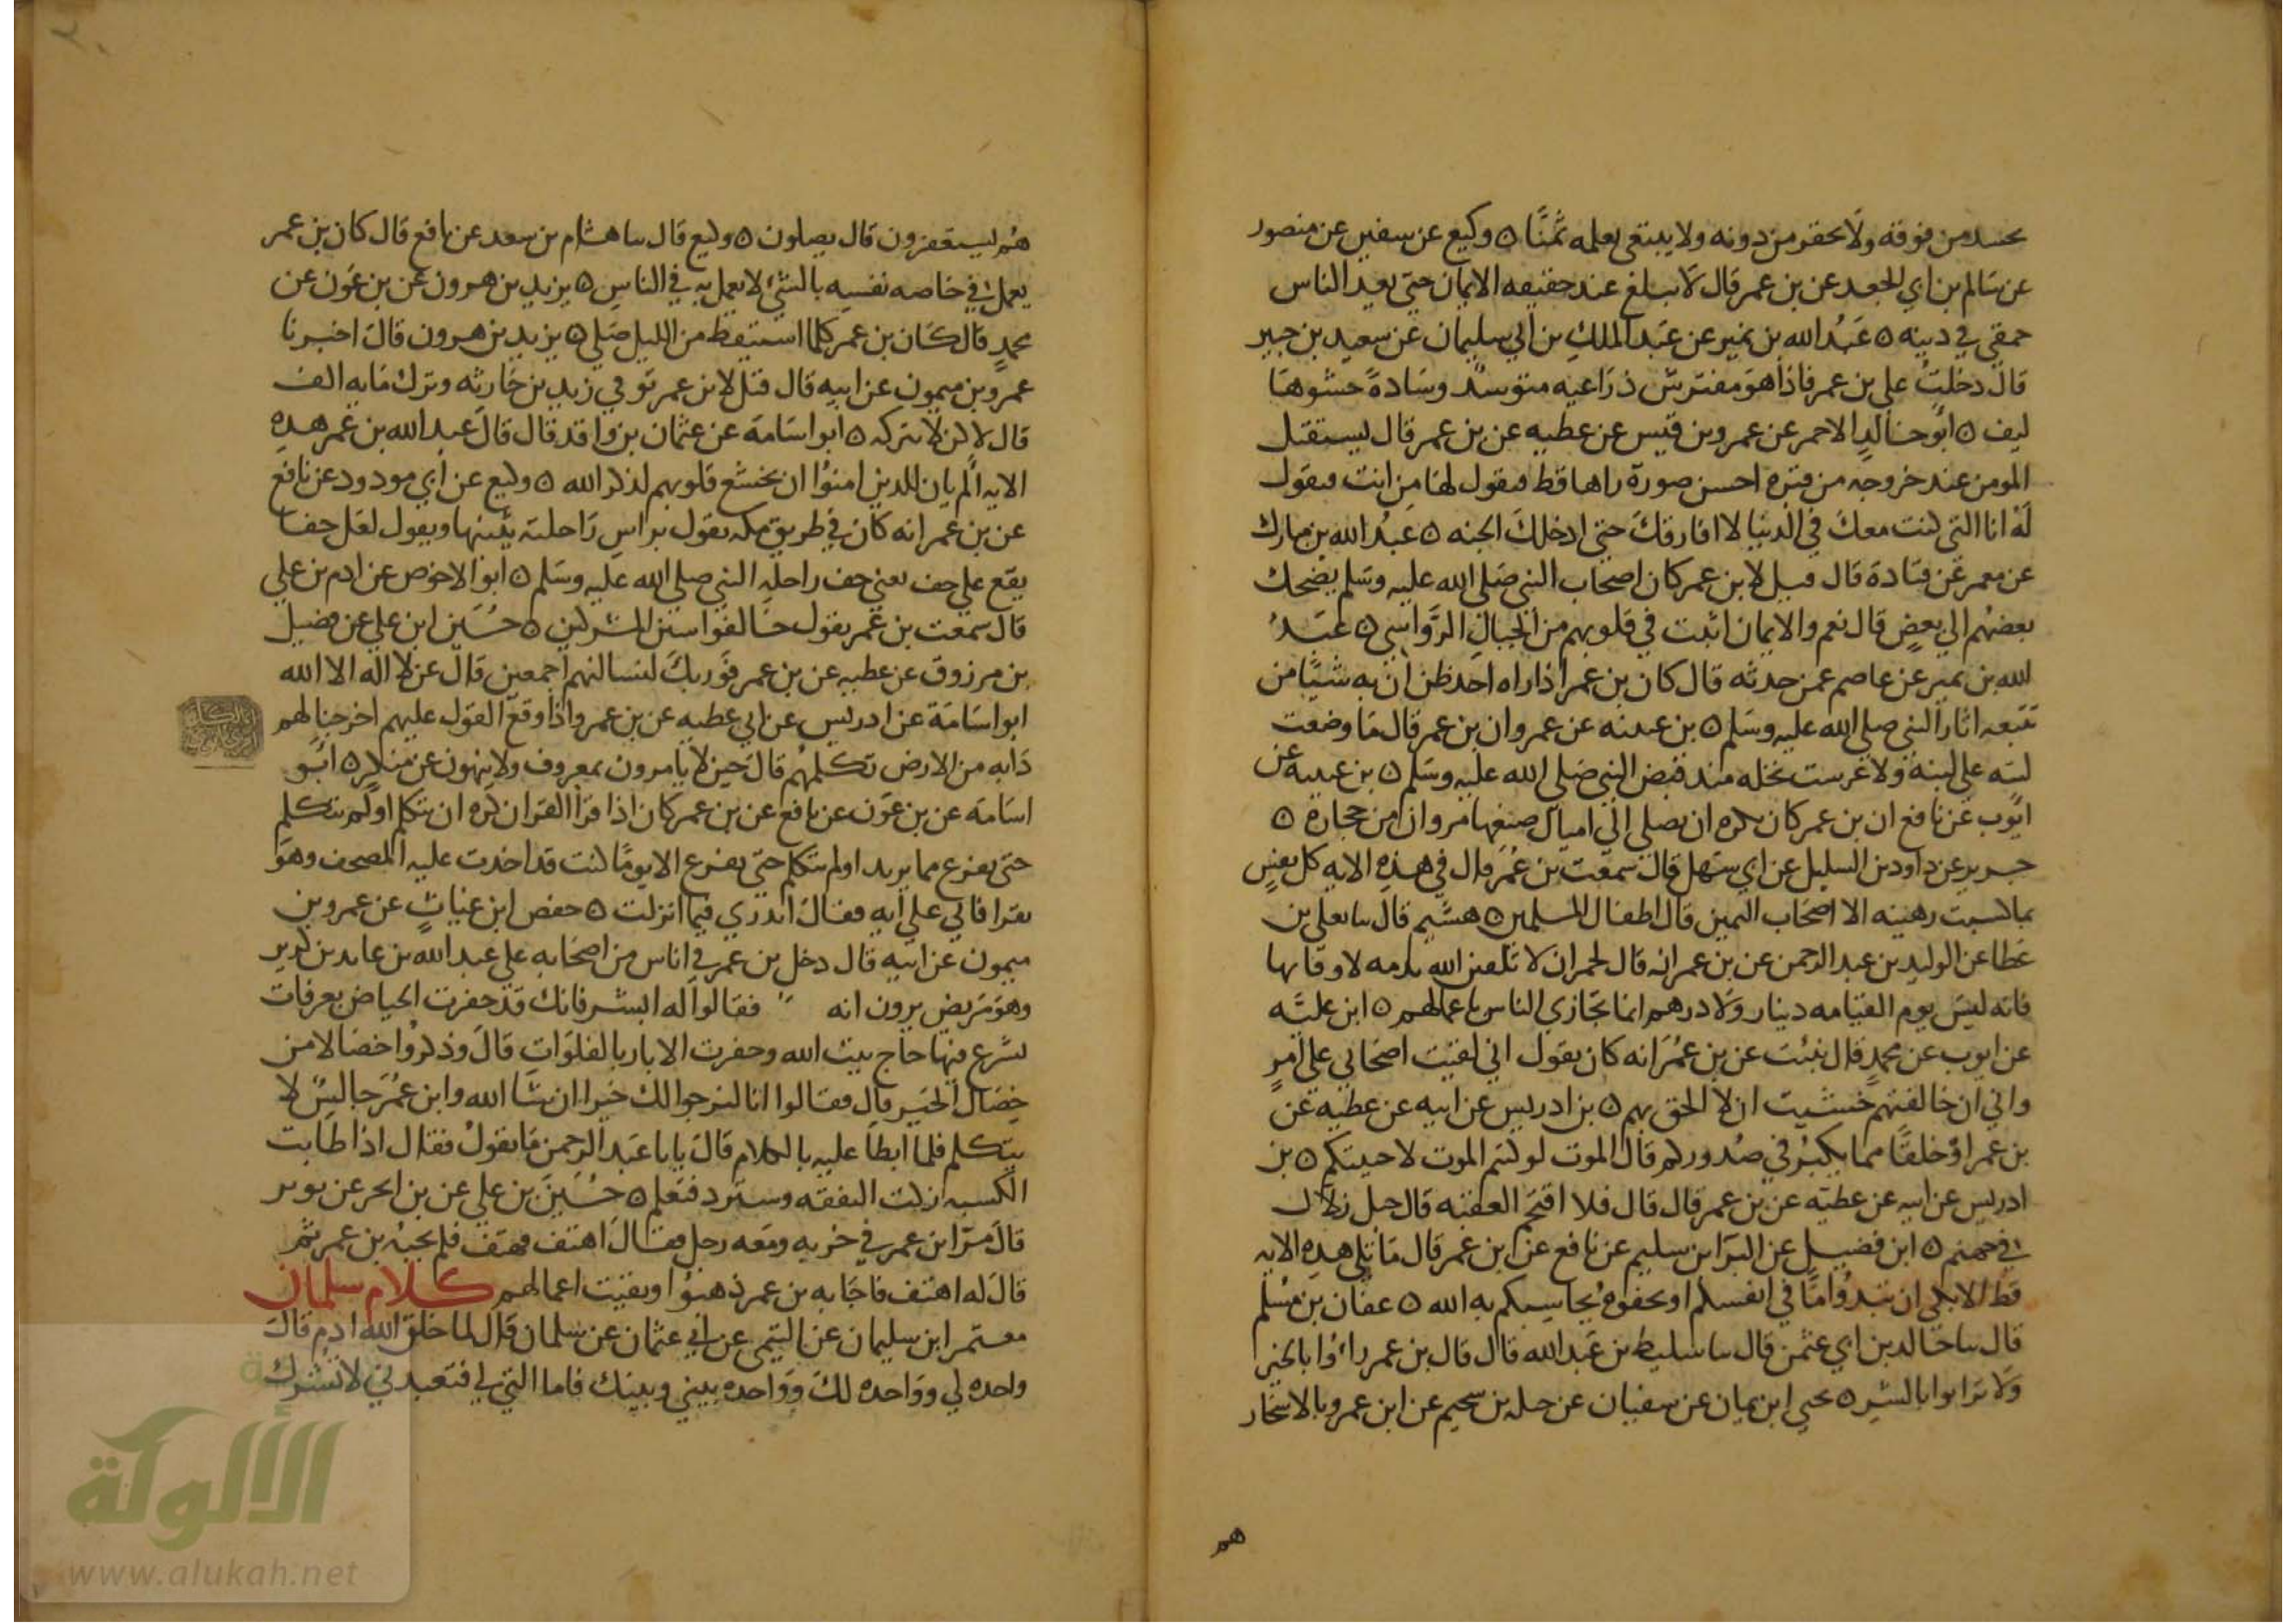 يحسد من فوقه ولا يحقر من دونه ولا يبتغي بعلمه ثمنا ٥ وكيع عن سفين عن منصور
عن سالم بن ابي الجعد عن بن عمر قال لا يبلغ عبد حقيقه الايمان حتى يعد الناس
حمقى في دينه ٥ عبد الله بن نمير عن عبد الملك بن ابي سليمان عن سعيد بن جبير
قال دخلت على بن عمر فاذا هو مفترش ذراعيه متوسد وسادة حشوها
ليف ٥ ابو خالد الاحمر عن عمرو بن قيس عن عطيه عن بن عمر قال يستقبل
المومن عند خروجه من قبره احسن صورة راها قط فيقول لها من انت فيقول
له انا التي كنت معك في الدنيا لا افارقك حتى ادخلك الجنه ٥ عبد الله بن مبارك
عن معمر عن قتادة قال قيل لابن عمر كان اصحاب النبي صلى الله عليه وسلم يضحك
بعضهم الى بعض قال نعم والايمان اثبت في قلوبهم من الجبال الرواسي ٥ عبد
الله بن نمير عن عاصم عمن حدثه قال كان بن عمر اذا راه احد ظن ان به شيئا من
تتبعه اثار النبي صلى الله عليه وسلم ٥ بن عيينه عن عمرو ان بن عمر قال ما وضعت
لبنه على لبنه ولا غرست نخله منذ قبض النبي صلى الله عليه وسلم ٥ بن عيينه عن
ايوب عن نافع ان بن عمر كان يكره ان يصلى الى اميال صنعها مروان من حجارة ٥
جرير عن داود بن السليل عن ابي سهل قال سمعت بن عمر قال في هذه الايه كل نفس
بما كسبت رهينه الا اصحاب اليمين قال اطفال المسلمين ٥ هشيم قال ىا يعلى بن
عطا عن الوليد بن عبد الرحمن عن بن عمر انه قال لحمران لا تلقين الله بذمه لا وفا بها
فانه ليس يوم القيامه دينار ولا درهم انما يجازى الناس باعمالهم ٥ ابن علية
عن ايوب عن محمد قال نبئت عن بن عمر انه كان يقول اني لقيت اصحابي على امر
واني ان خالفتهم خشيت ان لا الحق بهم ٥ بن ادريس عن ابيه عن عطيه عن
بن عمر او خلقا مما يكبر في صدوركم قال الموت لو كنتم الموت لاحييتكم ٥ بن
ادريس عن ابيه عن عطية عن بن عمر قال قال فلا اقتحم العقبه قال جبل زلال
في جهنم ٥ ابن فضيل عن البرا بن سليم عن نافع عن ابن عمر قال ما تلى هذه الايه
قط الا بكى ان تبدوا ما في انفسكم او تخفوه يحاسبكم به الله ٥ عفان بن مسلم
قال ىا خالد بن ابي عثمن قال ىا سليط بن عبد الله قال قال بن عمر راؤا بالخير
ولا تراءوا بالشر ٥ يحيى ابن يمان عن سفيان عن جبله بن سحيم عن ابن عمر وبالاسحار
هم
هم يستغفرون قال يصلون ٥ وكيع قال ىا هشام بن سعد عن نافع قال كان بن عمر
يعمل في خاصه نفسه بالشئ لا يعمل به في الناس ٥ يزيد بن هرون عن بن عون عن
محمد قال كان بن عمر كلما استيقظ من الليل صلى ٥ يزيد بن هرون قال اخبرنا
عمرو بن ميمون عن ابيه قال قيل لابن عمر توفي زيد بن حارثه وترك مايه الف
قال لا لكن لا تتركه ٥ ابو اسامة عن عثمان بن واقد قال قال عبد الله بن عمر هذه
الايه الم يان للذين امنوا ان تخشع قلوبهم لذكر الله ٥ وكيع عن ابي مودود عن نافع
عن بن عمر انه كان في طريق مكه يقول براس راحلته يثنيها ويقول لعل خفا
يقع على خف يعني خف راحله النبي صلى الله عليه وسلم ٥ ابو الاحوص عن ادم بن علي
قال سمعت بن عمر يقول خالفوا سنن المشركين ٥ حسين ابن علي عن فضيل
بن مرزوق عن عطيه عن بن عمر فوربك لنسالنهم اجمعين قال عن لا اله الا الله
ابو اسامة عن ادريس عن ابي عطيه عن بن عمر واذا وقع القول عليهم اخرجنا لهم
دابه من الارض تكلمهم قال حين لا يامرون بمعروف ولا ينهون عن منكر ٥ ابو
اسامة عن بن عون عن نافع عن بن عمر كان اذا قرا القران كره ان يتكلم او لم يتكلم
حتى يفرغ مما يريد او لم يتكلم حتى يفرغ الا يوما كنت قد اخذت عليه المصحف وهو
يقرا فاتى على آيه فقال اتدري فيما انزلت ٥ حفص ابن غياث عن عمرو بن
ميمون عن ابيه قال دخل بن عمر في اناس من اصحابه على عبد الله بن عامر بن كريز
وهو مريض يرون انه فقالوا له ابشر فانك قد حفرت الحياض بعرفات
يشرع فيها حاج بيت الله وحفرت الابار بالفلوات قال وذكروا خصالا من
خصال الخير قال فقالوا انا لنرجوا لك خيرا ان شا الله وابن عمر جالس لا
يتكلم فلما ابطا عليه بالكلام قال يابا عبد الرحمن ما تقول فقال اذا طابت
الكسبه زكت النفقه وسترد فتعلم ٥ حسين بن علي عن بن ابحر عن ثوير
قال مر ابن عمر في خربه ومعه رجل فقال اهتف فهتف فلم يجبه بن عمر ثم
قال له اهتف فاجابه بن عمر ذهبوا وبقيت اعمالهم كلام سلمان
معتمر ابن سليمان عن التيمي عن ابي عثمان عن سلمان قال لما خلق الله ادم قال
واحده لي وواحده لك وواحده بيني وبينك فاما التي لي فتعبدني لا تشرك
الألوكة
www.alukah.net